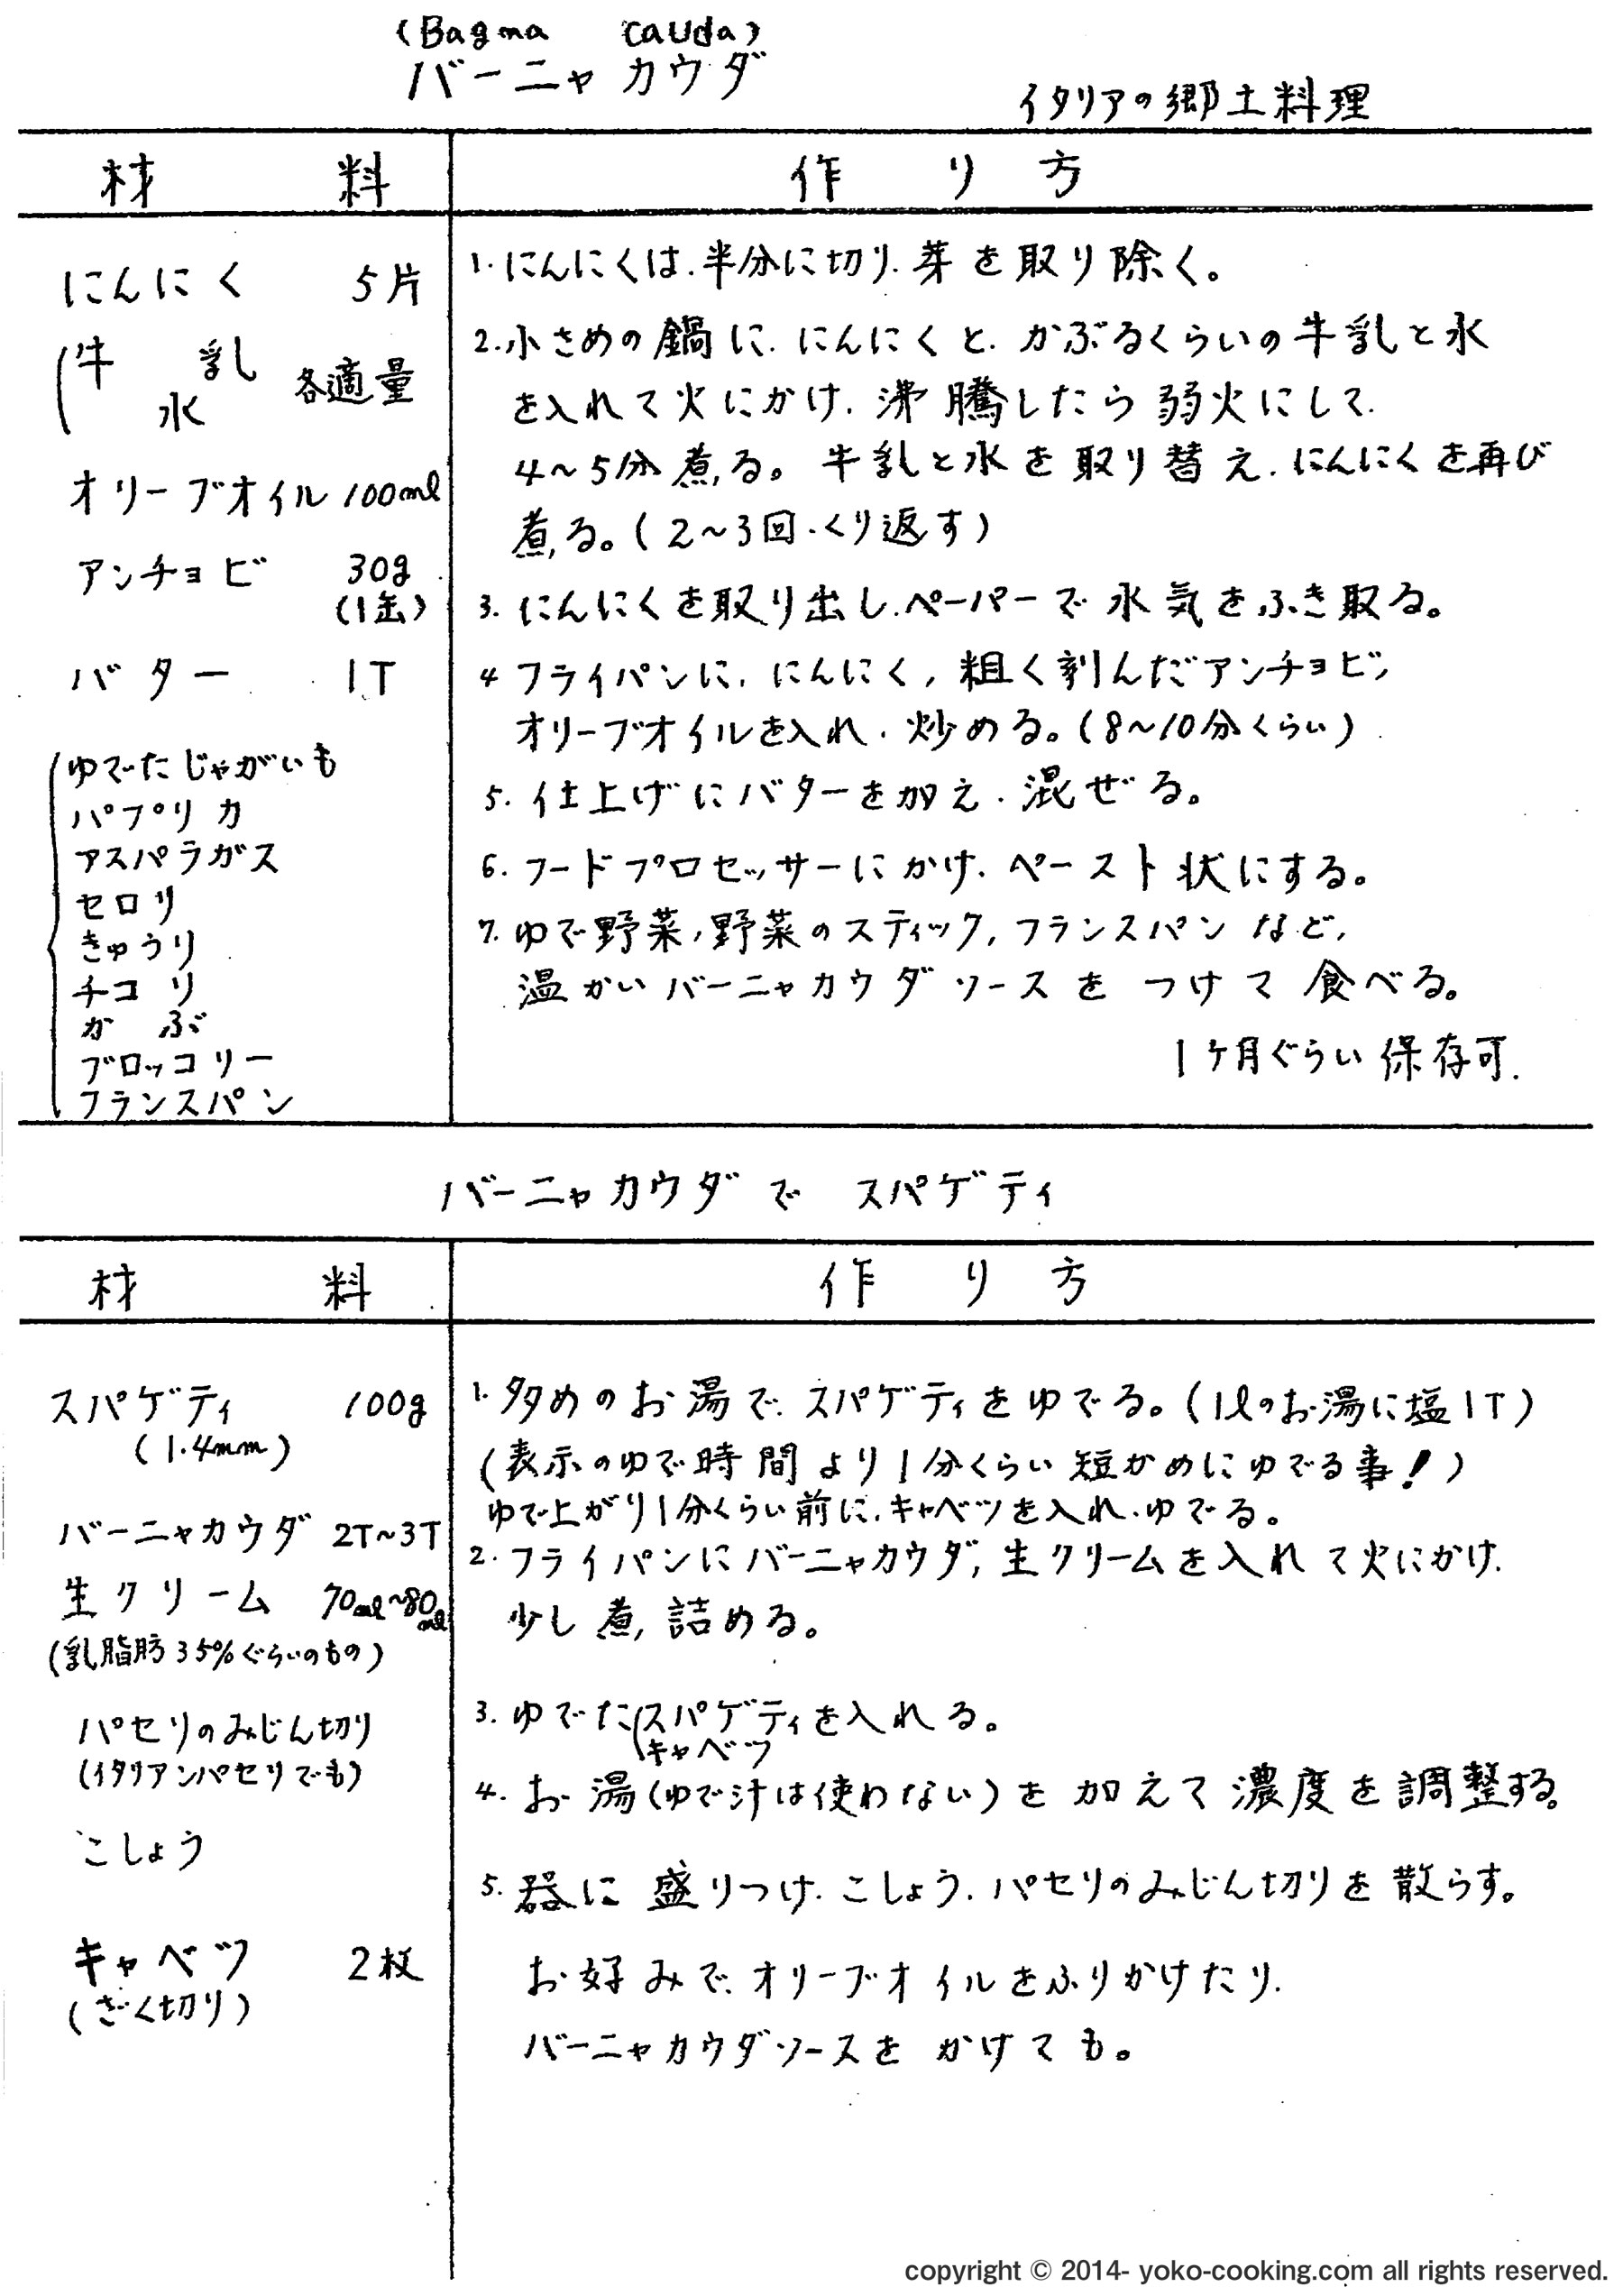 (Bagna cauda)
バーニャカウダ
イタリアの郷土料理
材料
作り方
にんにく 5片
牛乳
水
各適量
オリーブオイル 100ml
アンチョビ 30g
(1缶)
バター 1T
ゆでたじゃがいも
パプリカ
アスパラガス
セロリ
きゅうり
チコリ
かぶ
ブロッコリー
フランスパン
1. にんにくは、半分に切り、芽を取り除く。
2. 小さめの鍋に、にんにくと、かぶるくらいの牛乳と水
を入れて火にかけ、沸騰したら弱火にして、
4〜5分煮る。牛乳と水を取り替え、にんにくを再び
煮る。(2〜3回、くり返す)
3. にんにくを取り出し、ペーパーで水気をふき取る。
4 フライパンに、にんにく、粗く刻んだアンチョビ、
オリーブオイルを入れ、炒める。(8〜10分くらい)
5. 仕上げにバターを加え、混ぜる。
6. フードプロセッサーにかけ、ペースト状にする。
7. ゆで野菜、野菜のスティック、フランスパンなど、
温かいバーニャカウダソースをつけて食べる。
1ヶ月ぐらい保存可.
バーニャカウダで スパゲティ
材料
作り方
スパゲティ 100g
(1.4mm)
バーニャカウダ 2T〜3T
生クリーム 70ml〜80ml
(乳脂肪35%ぐらいのもの)
パセリのみじん切り
(イタリアンパセリでも)
こしょう
キャベツ 2枚
(ざく切り)
1. 多めのお湯で、スパゲティをゆでる。(1lのお湯に塩1T)
(表示のゆで時間より1分くらい短かめにゆでる事!)
ゆで上がり1分くらい前に、キャベツを入れ、ゆでる。
2. フライパンにバーニャカウダ、生クリームを入れて火にかけ、
少し煮詰める。
3. ゆでたスパゲティを入れる。
キャベツ
4. お湯(ゆで汁は使わない)を加えて濃度を調整する。
5. 器に盛りつけ、こしょう、パセリのみじん切りを散らす。
お好みで、オリーブオイルをふりかけたり、
バーニャカウダソースをかけても。
copyright © 2014- yoko-cooking.com all rights reserved.